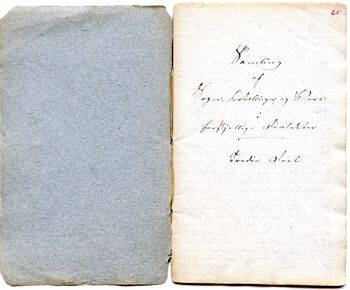 65
Samling
af
Sagn, Fortællinger og Viser
i
forskjellige Dialekter
Tredie Deel